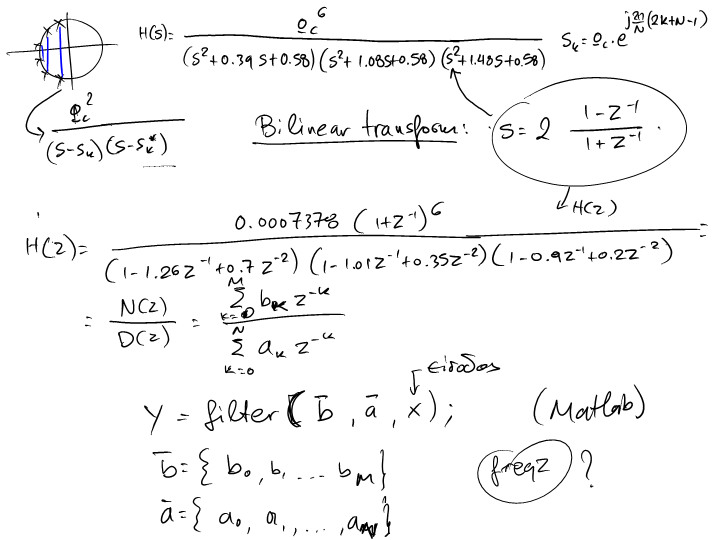 H(s)= Ωc^6 / (s²+0.39s+0.58)(s²+1.08s+0.58)(s²+1.48s+0.58)   s_k = Ωc·e^{jπ/2N(2k+N-1)}
Ωc² / (s-s_k)(s-s_k*)
Bilinear transform: s = 2 (1-z^-1)/(1+z^-1).
H(z)
H(z)= 0.0007378 (1+z^-1)^6 / (1-1.26z^-1+0.7z^-2)(1-1.01z^-1+0.35z^-2)(1-0.9z^-1+0.2z^-2) =
= N(z)/D(z) = Σ_{k=0}^{M} b_k z^-k / Σ_{k=0}^{N} a_k z^-k
είσοδος
Y = filter(b̄, ā, x);   (Matlab)
b̄={b₀, b₁ ... b_M}   freqz ?
ā={a₀, a₁, ..., a_N}